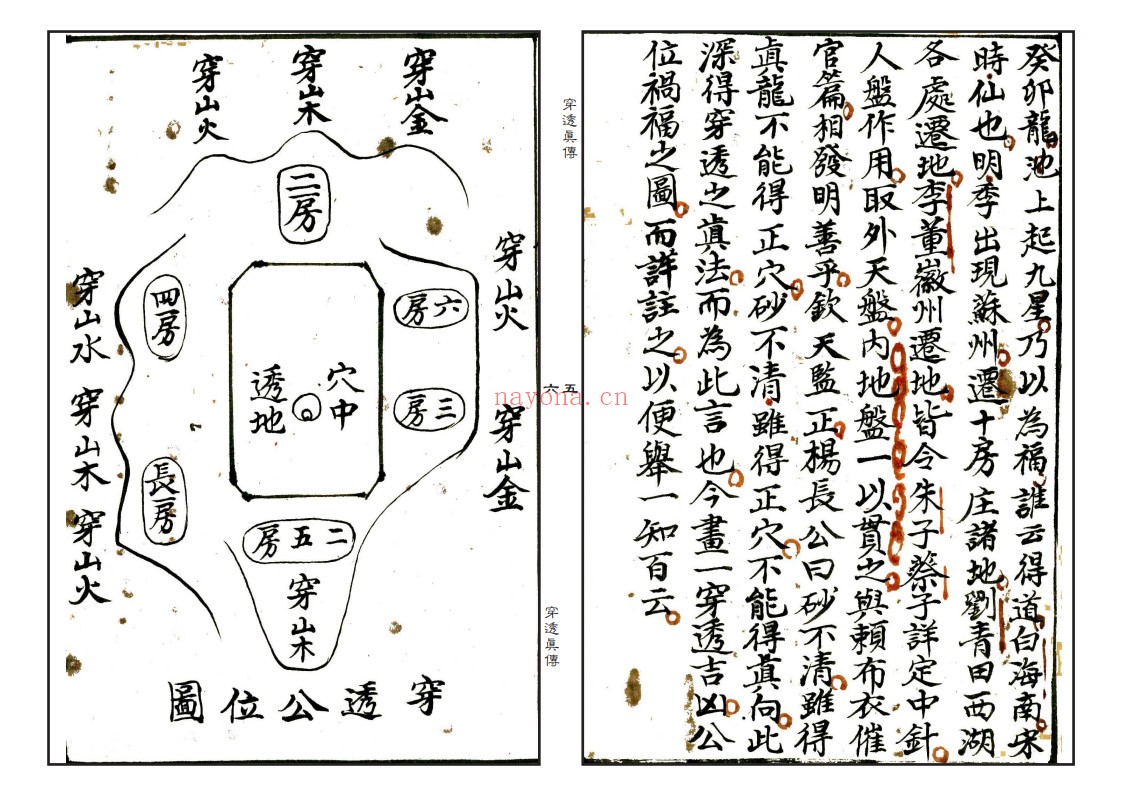 癸卯龍池上起九星乃以為福誰云得道白海南宋
時仙也明季出現蘇州遷十房庄諸地劉青田西湖
各處遷地李董徽州遷地皆令朱子蔡子詳定中針
人盤作用取外天盤內地盤一以貫之與賴布衣催
官篇相發明善乎欽天監正楊長公曰砂不清雖得
真龍不能得正穴砂不清雖得正穴不能得真向此
深得穿透之真法而為此言也今畫一穿透吉凶公
位禍福之圖而詳註之以便舉一知百云
穿透真傳
五
六
穿透真傳
nayona.cn
穿山金
穿山木
穿山火
二房
穿山火
六房
三房
穿山金
四房
長房
穿山水
穿山木
穿山火
穴中
透地
二五房
穿山木
穿透公位圖